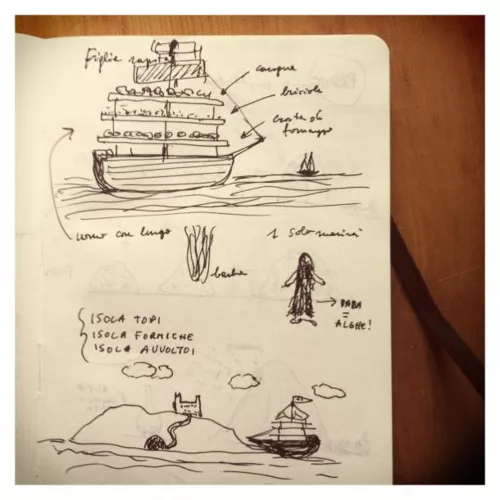 Figlia rapita
carogne
briciole
croste di
formaggio
uomo con lunga
barba
1 solo marinaio
BARBA
=
ALGHE!
ISOLA TOPI
ISOLA FORMICHE
ISOLA AVVOLTOI